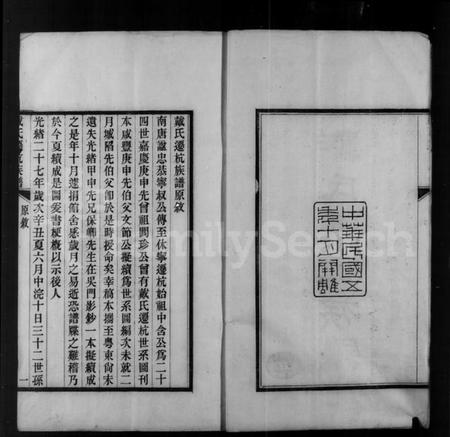 中華民國五
年十一月開雕
戴氏遷杭族譜原敘
南唐諡忠恭寧叔公傳至休寧遷杭始祖中含公爲二十
四世嘉慶庚申先曾祖閏珍公曾有戴氏遷杭世系圖刊
本咸豐庚申先伯父文節公擬續爲世系圖編次未就二
月城陷先伯父卽於是時授命矣幸稿本攜至粵東尙未
遺失光緒甲申先兄保卿先生在吳門影鈔一本擬續成
之是年十月遽捐館舍感歲月之易逝恐譜牒之難稽乃
於今夏續成是圖爰書梗概以示後人
光緒二十七年歲次辛丑夏六月中浣十日三十二世孫
戴氏遷杭族譜 原敘 一
FamilySearch